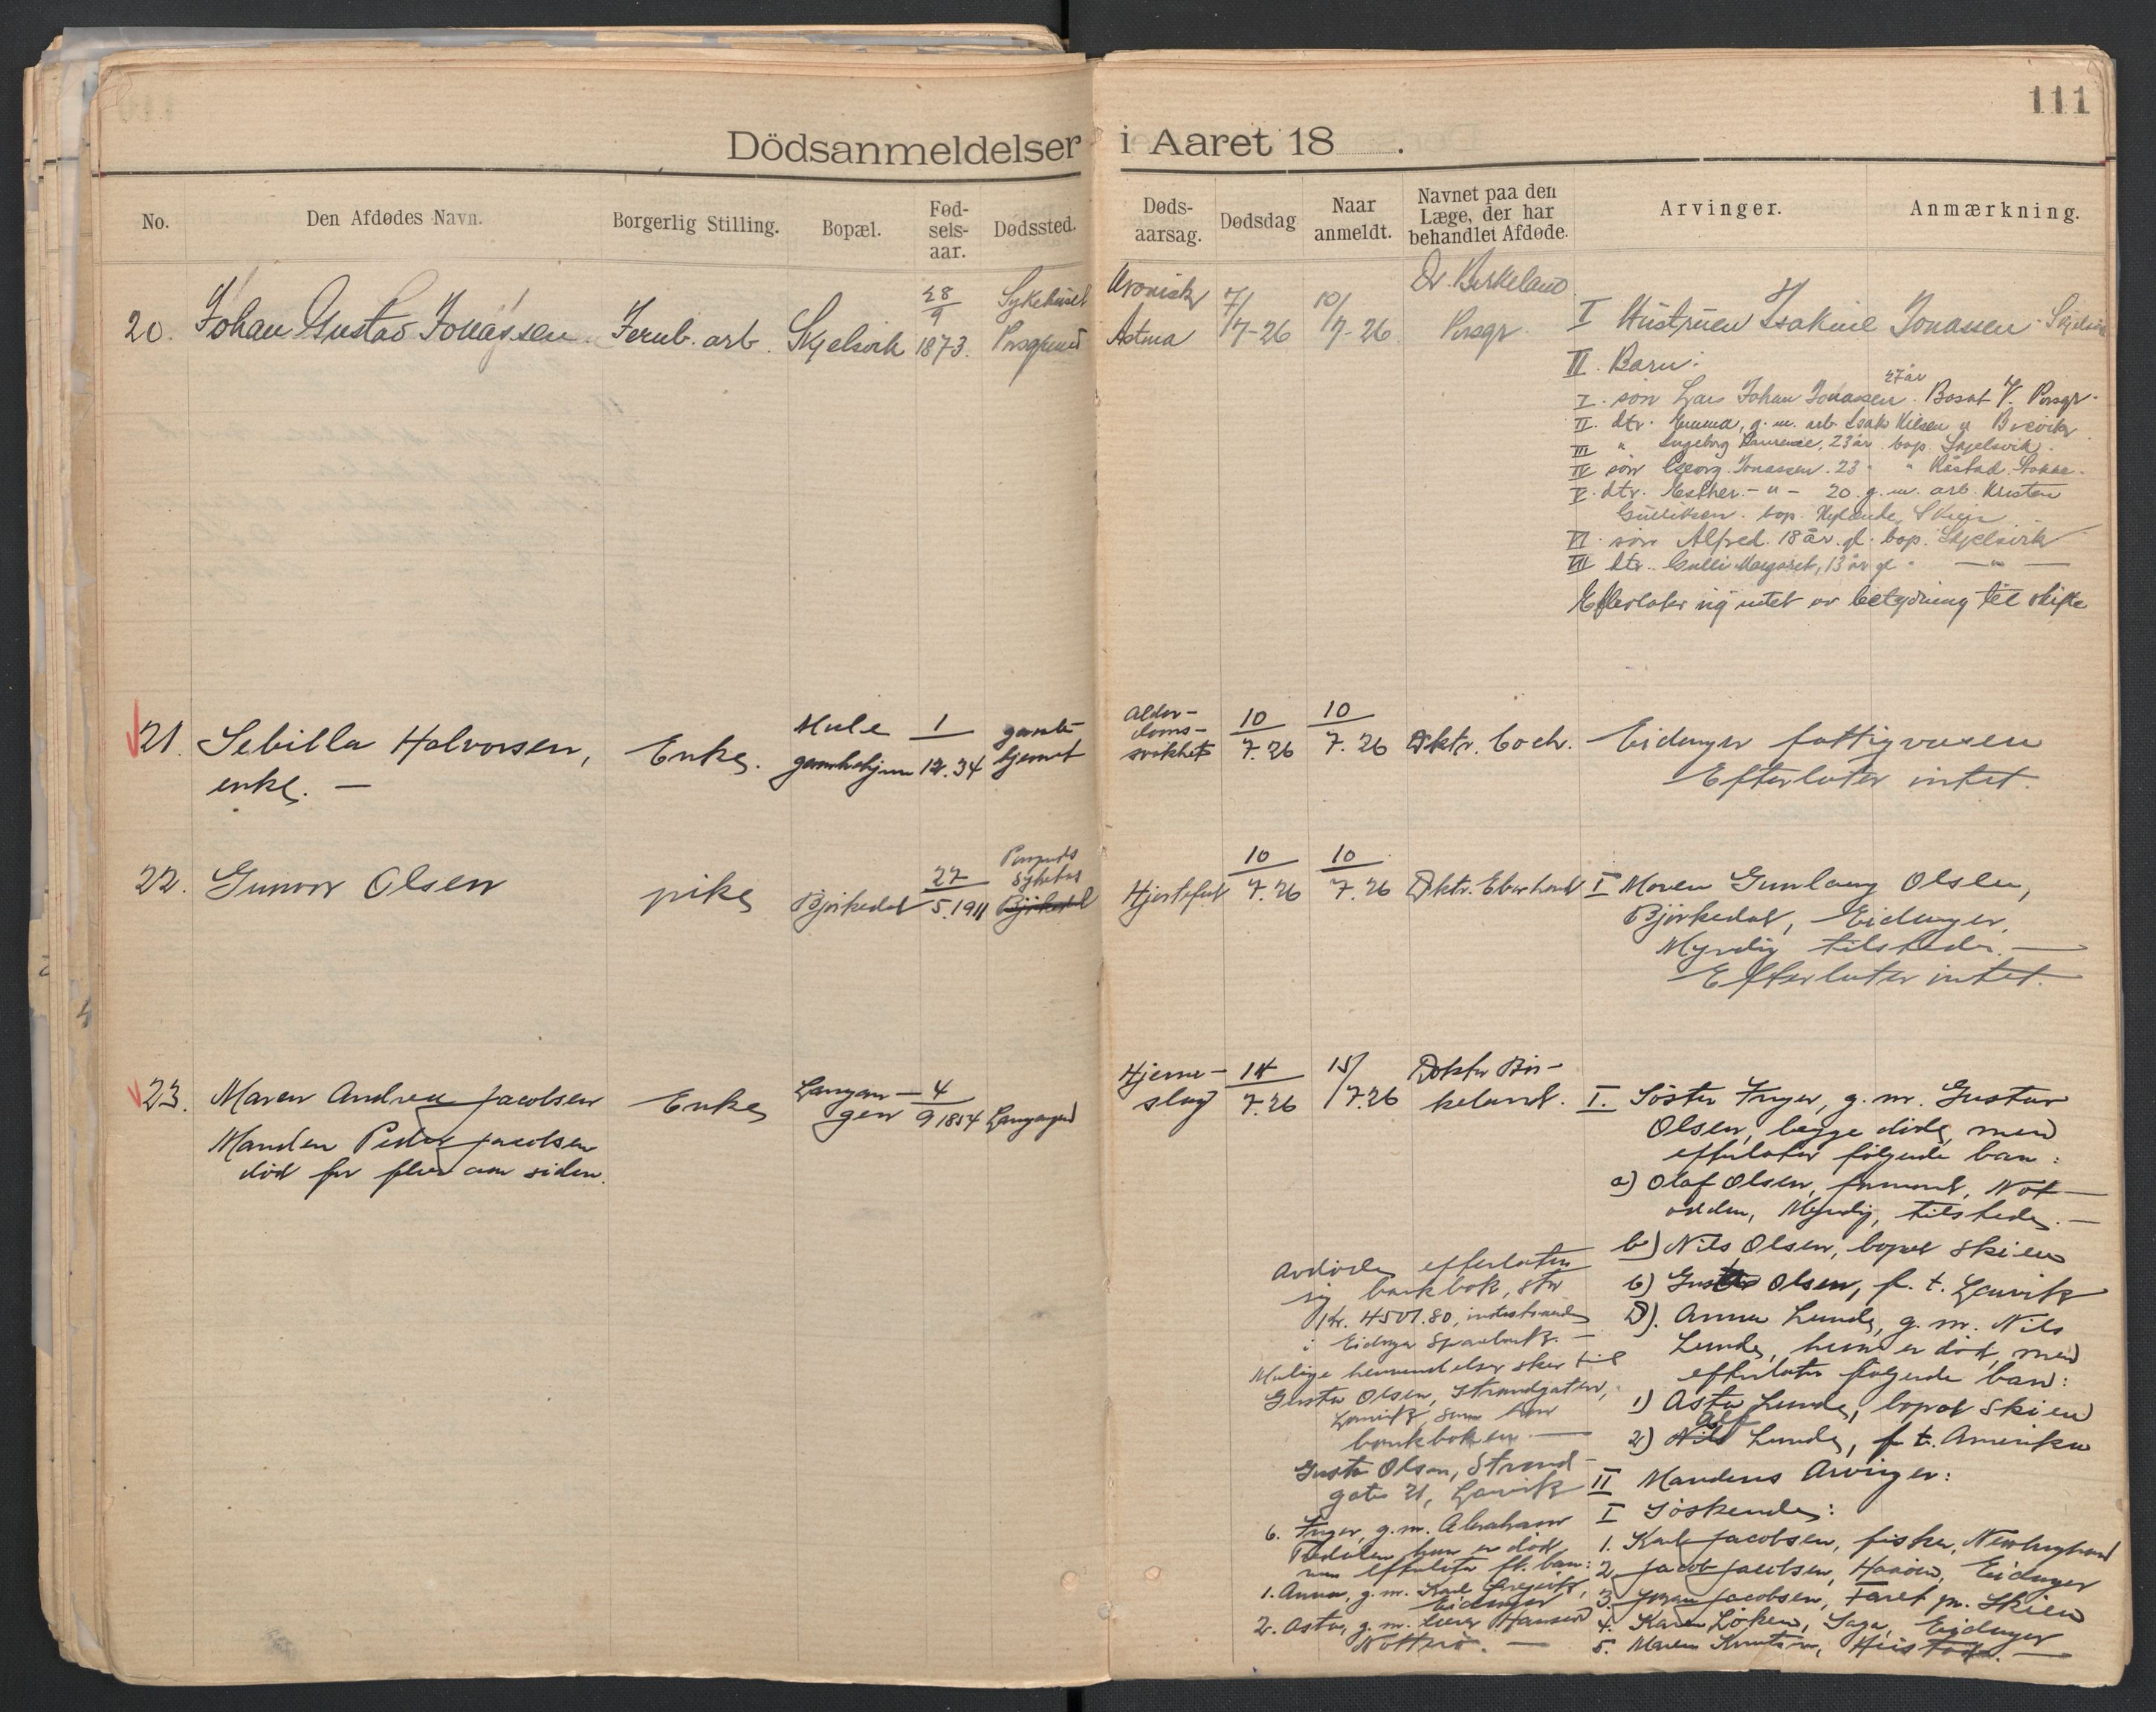 111
Dödsanmeldelser i Aaret 18 .
No.
Den Afdødes Navn.
Borgerlig Stilling.
Bopæl.
Fød-
sels-
aar.
Dødssted.
Døds-
aarsag.
Dødsdag
Naar
anmeldt.
Navnet paa den
Læge, der har
behandlet Afdøde.
Arvinger.
Anmærkning.
20. Johan Gustav Jonassen
Jernb. arb.
Skjelsvik
28/9
1873.
Sykehuset
Porsgrund
Kronisk
Astma
7/7-26
10/7-26
Dr. Birkeland
Porsgr.
I Hustruen Isakine Jonassen. Skjelsvik
II. Barn:
I. søn Lars Johan Jonassen 27 år. Bosat V. Porsgr.
II. dtr. Emma, g. m. arb. Isak Nilsen Brevik
III " Ingeborg Laurense, 23 år bop. Skjelsvik.
IV søn Georg Jonassen. 23 "
V. dtr. Esther - " - 20. g. m. arb. Kristen
Gulliksen. bop. Skien
VI. søn Alfred. 18 år. gl. bop. Skjelsvik
VII dtr. Margaret, 13 år gl. " — " —
Efterlater sig intet av betydning til skifte
21. Sebilla Halvorsen,
enke. —
Enke.
Mule
gamlehjem
1
12. 34
gamle-
hjemmet
Alder-
doms-
svakhet
10
7. 26
10
7. 26
Dktr. Coch.
Eidanger fattigvæsen
Efterlater intet.
22. Gunvor Olsen
pike
Bjørkedal
27
5. 1911
Porsgrunds
Sykehus
Bjørkedal
Hjertefeil
10
7. 26
10
7. 26
Dktr. Eberhard
I Moren Gunlaug Olsen,
Bjørkedal, Eidanger,
Myndig tilstede. —
Efterlater intet.
23. Maren Andrea Jacobsen
Manden Peder Jacobsen
død for flere aar siden.
Enke
Langan-
gen
4
9 1854
Langangen
Hjerne-
slag
14
7. 26
15/7.26
Doktor Bir-
keland.
I. Søster Inger, g. m. Gustav
Olsen, begge døde, men
efterlater følgende barn:
a) Olaf Olsen, formand, Not-
odden, Myndig, tilstede. —
b) Nils Olsen, bopæl Skien
c) Gustav Olsen, f. t. Larvik
D). Anna Lunde, g. m. Nils
Lunde, hun er død, men
efterlater følgende barn:
1) Asta Lunde, bopæl Skien
2) Nils Alf Lunde, f. t. Amerika
II Mandens Arvinger:
I Søskende:
1. Karl Jacobsen, fisker, Nevlunghavn
2. Jacob Jacobsen, Eidanger
3. Johan Jacobsen, Faret pr. Skien
4. Karen Løken, Saga, Eidanger
5. Maren Knutsen,
Avdøde efterlater
sig bankbok, stor
Kr. 4501.80, indestaaende
i Eidanger Sparebank. —
Mulige henvendelser sker til
Gustav Olsen, Strandgaten,
Larvik, som har
bankboken. —
Gustav Olsen, Strand-
gate 21, Larvik
6. Inger, g. m. Abraham
hun er død
men efterlater fl. barn:
1. Anna, g. m. Karl
Eidanger
2. Asta, g. m. Hansen
Nøtterø. —